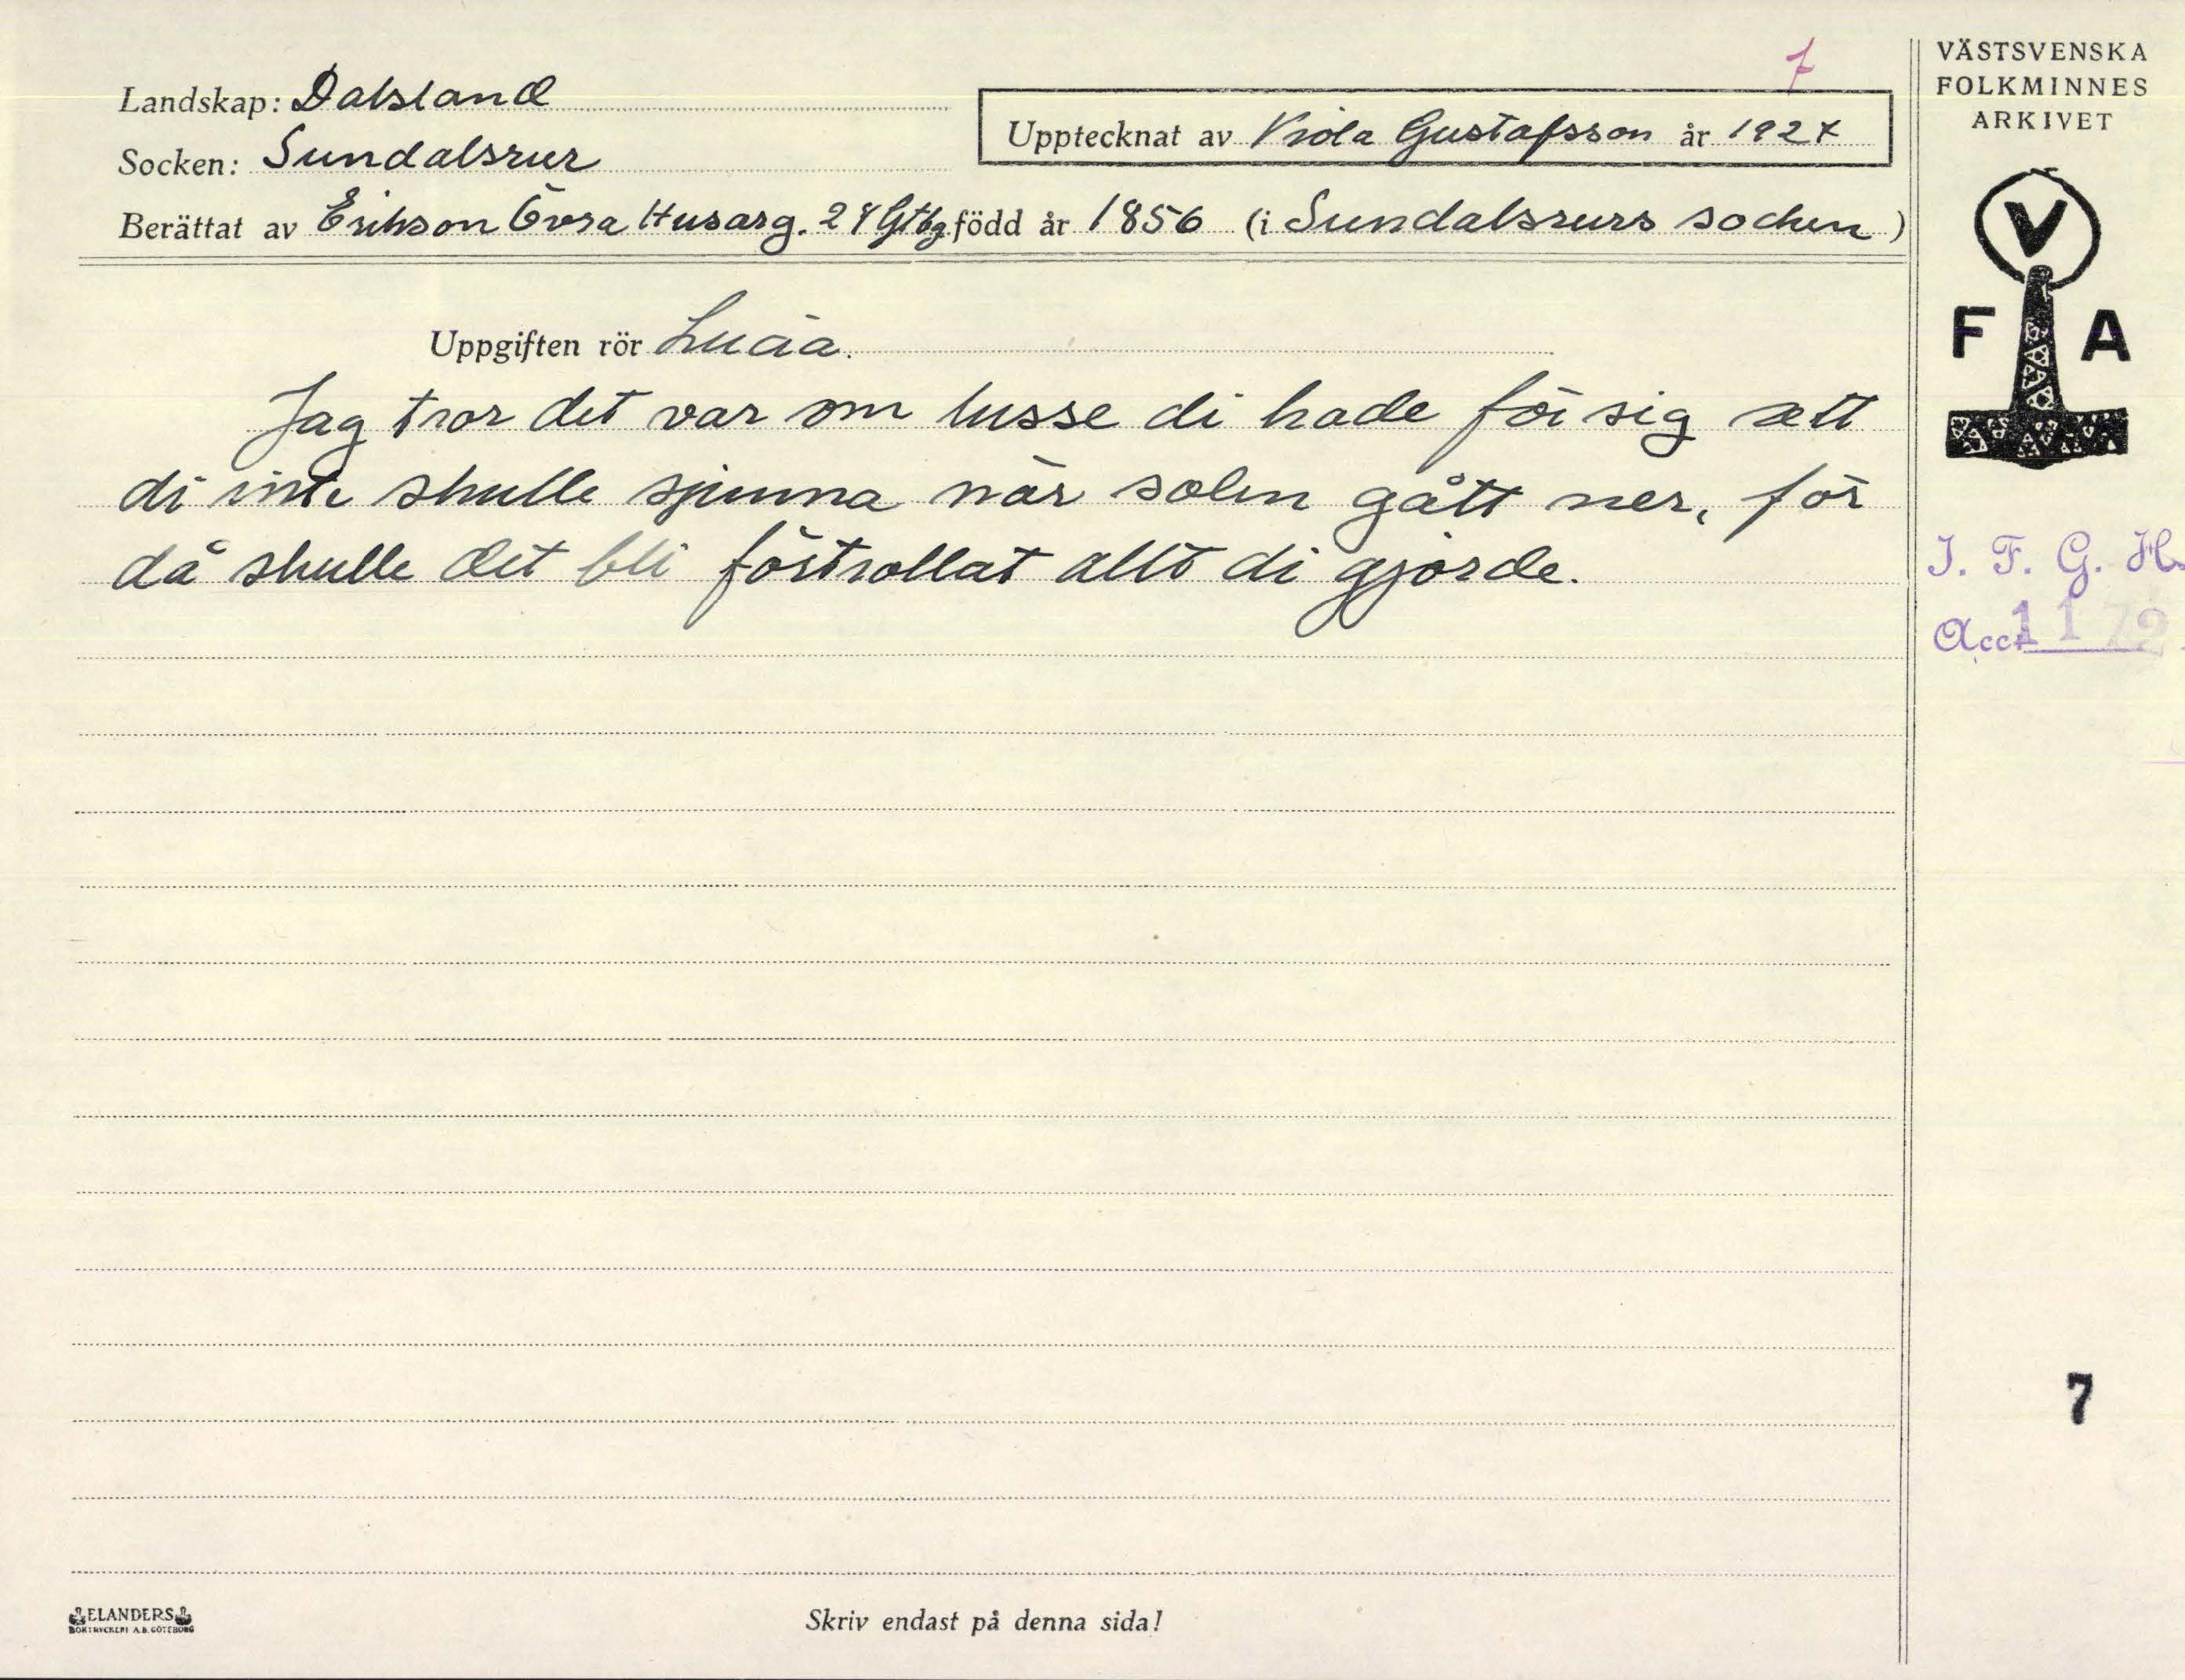 7
Landskap: Dalsland
Upptecknat av Viola Gustafsson år 1927
Socken: Sundalsrur
Berättat av Erikson Övra Husarg. 28 Gtbg född år 1856 (i Sundalsrurs socken)
Uppgiften rör Lucia.
Jag tror det var om lusse di hade för sig att
di inte skulle spinna när solen gått ner, för
då skulle det bli förtrollat allt di gjorde.
Skriv endast på denna sida!
ELANDERS
BOKTRYCKERI A.B. GÖTEBORG
VÄSTSVENSKA
FOLKMINNES
ARKIVET
V
F A
I. F. G. H.
Acc. 1172
7